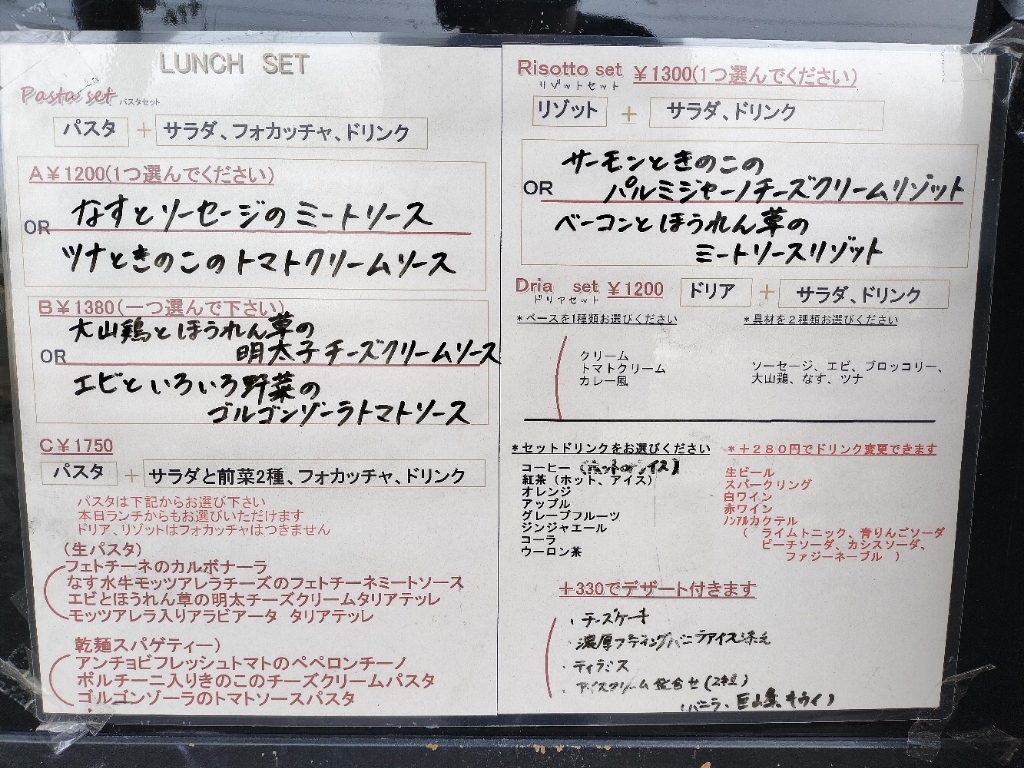 LUNCH SET
Pasta set パスタセット
パスタ + サラダ、フォカッチャ、ドリンク
A¥1200(1つ選んでください)
なすとソーセージのミートソース
OR
ツナときのこのトマトクリームソース
B¥1380(一つ選んで下さい)
大山鶏とほうれん草の
明太子チーズクリームソース
OR
エビといろいろ野菜の
ゴルゴンゾーラトマトソース
C¥1750
パスタ + サラダと前菜2種、フォカッチャ、ドリンク
パスタは下記からお選び下さい
本日ランチからもお選びいただけます
ドリア、リゾットはフォカッチャはつきません
(生パスタ)
フェトチーネのカルボナーラ
なす水牛モッツアレラチーズのフェトチーネミートソース
エビとほうれん草の明太チーズクリームタリアテッレ
モッツアレラ入りアラビアータ タリアテッレ
乾麺スパゲティー)
アンチョビフレッシュトマトのペペロンチーノ
ポルチーニ入りきのこのチーズクリームパスタ
ゴルゴンゾーラのトマトソースパスタ
Risotto set ¥1300(1つ選んでください)
リゾットセット
リゾット + サラダ、ドリンク
サーモンときのこの
パルミジャーノチーズクリームリゾット
OR
ベーコンとほうれん草の
ミートソースリゾット
Dria set ¥1200 ドリア + サラダ、ドリンク
ドリアセット
*ベースを1種類お選びください
*具材を2種類お選びください
クリーム
トマトクリーム
カレー風
ソーセージ、エビ、ブロッコリー、
大山鶏、なす、ツナ
*セットドリンクをお選びください
コーヒー (ホットorアイス)
紅茶(ホット、アイス)
オレンジ
アップル
グレープフルーツ
ジンジャエール
コーラ
ウーロン茶
*+280円でドリンク変更できます
生ビール
スパークリング
白ワイン
赤ワイン
ノンアルカクテル
( ライムトニック、青りんごソーダ
ピーチソーダ、カシスソーダ、
ファジーネーブル )
+330でデザート付きます
・チーズケーキ
・濃厚プディングバニラアイス添え
・ティラミス
・アイスクリーム盛合せ(2種)
(バニラ、巨峰、キウイ)